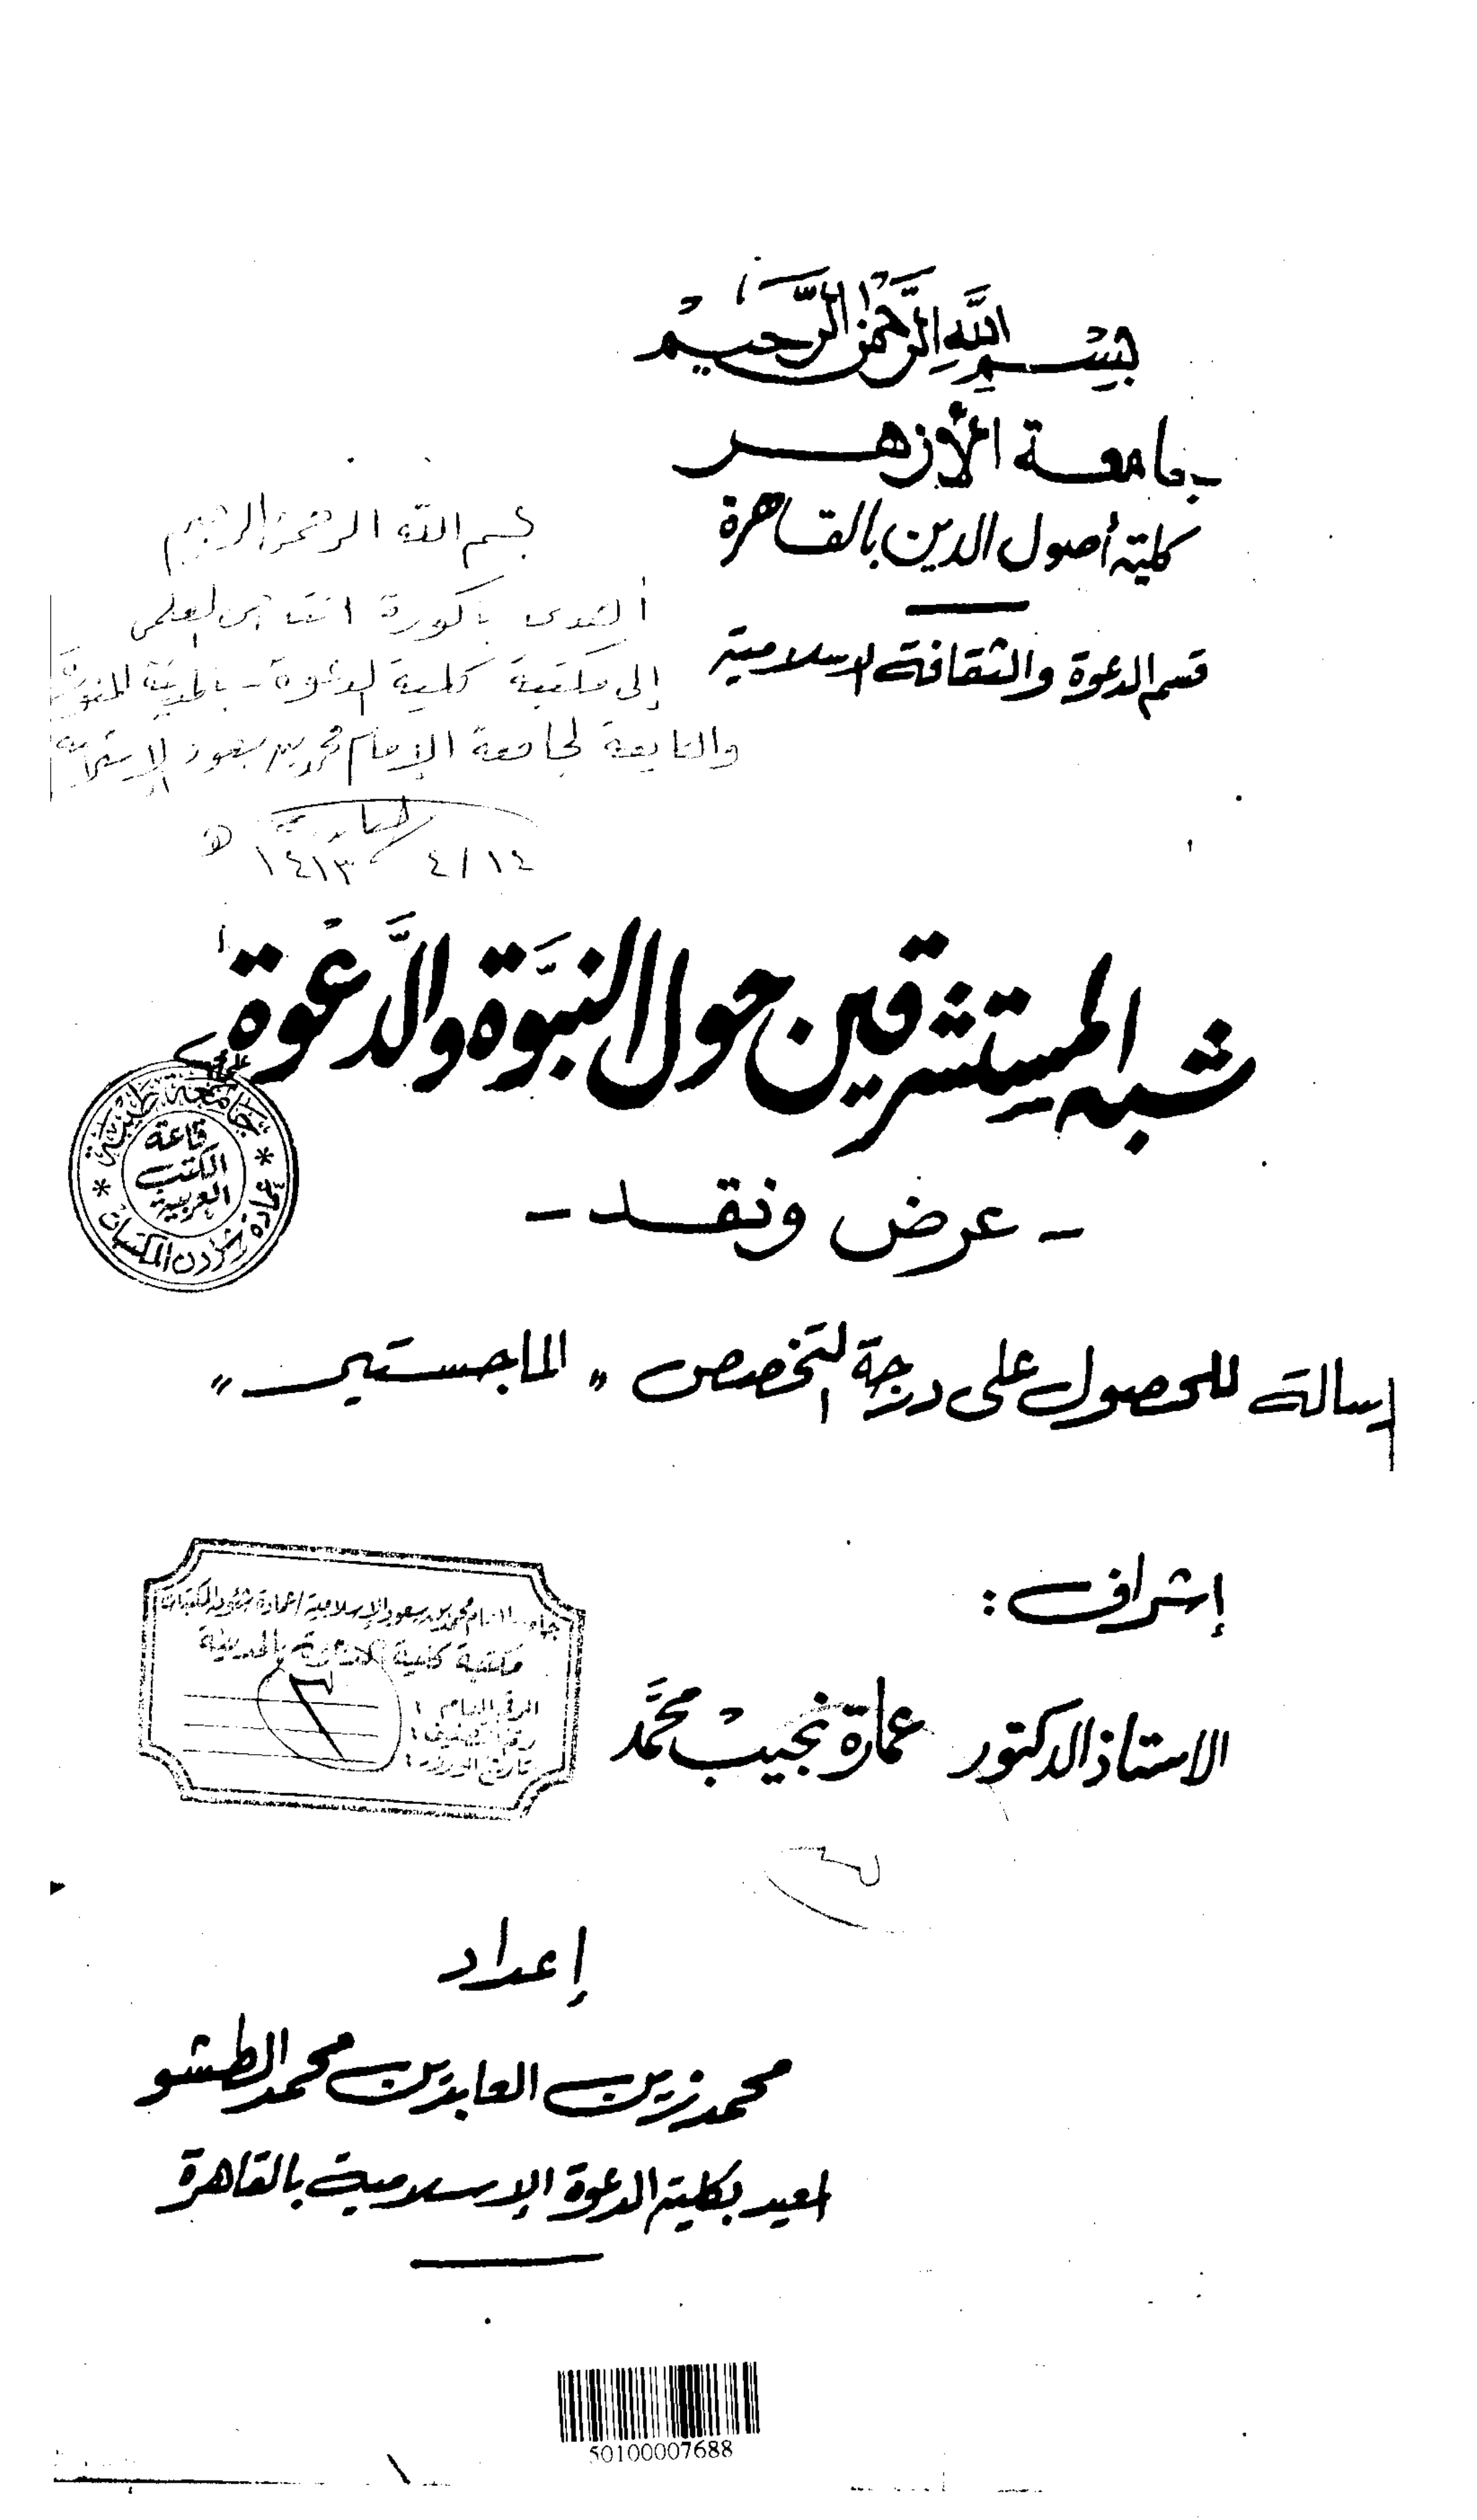 بِسْمِ اللَّهِ الرَّحْمَنِ الرَّحِيمْ
جامعة الأزهر
كلية أصول الدين بالقاهرة
قسم الدعوة والثقافة الاسلامية
بسم الله الرحمن الرحيم
أهدى باكورة انتاجى العلمى
إلى مكتبة كلية الدعوة - بالمدينة المنورة
والتابعة لجامعة الإمام محمد بن سعود الإسلامية
١٤/٤/١٤١٣ ه
شبه المستشرقين حول النبوَّة والدَّعْوة
جامعة طيبة
قاعة
الكتب
العربية
عمادة شؤون المكتبات
- عرض ونقد -
رسالة للحصول على درجة التخصص " الماجستير "
إشراف :
جامعة الامام محمد بن سعود الإسلامية / عمادة شؤون المكتبات
مكتبة كلية الدعوة بالمدينة
٢
الاستاذ الدكتور عمارة نجيبْ محمَّد
إعداد
محمد زين العابدين محمد الطشو
المعيد بكلية الدعوة الإسلامية بالقاهرة
50100007688